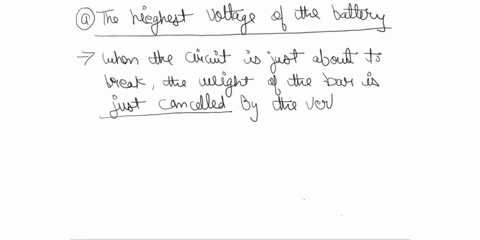 (a) The hieghest voltage of the battery
→ when the circuit is just about to
break, the weight of the bar is
just cancelled By the ver